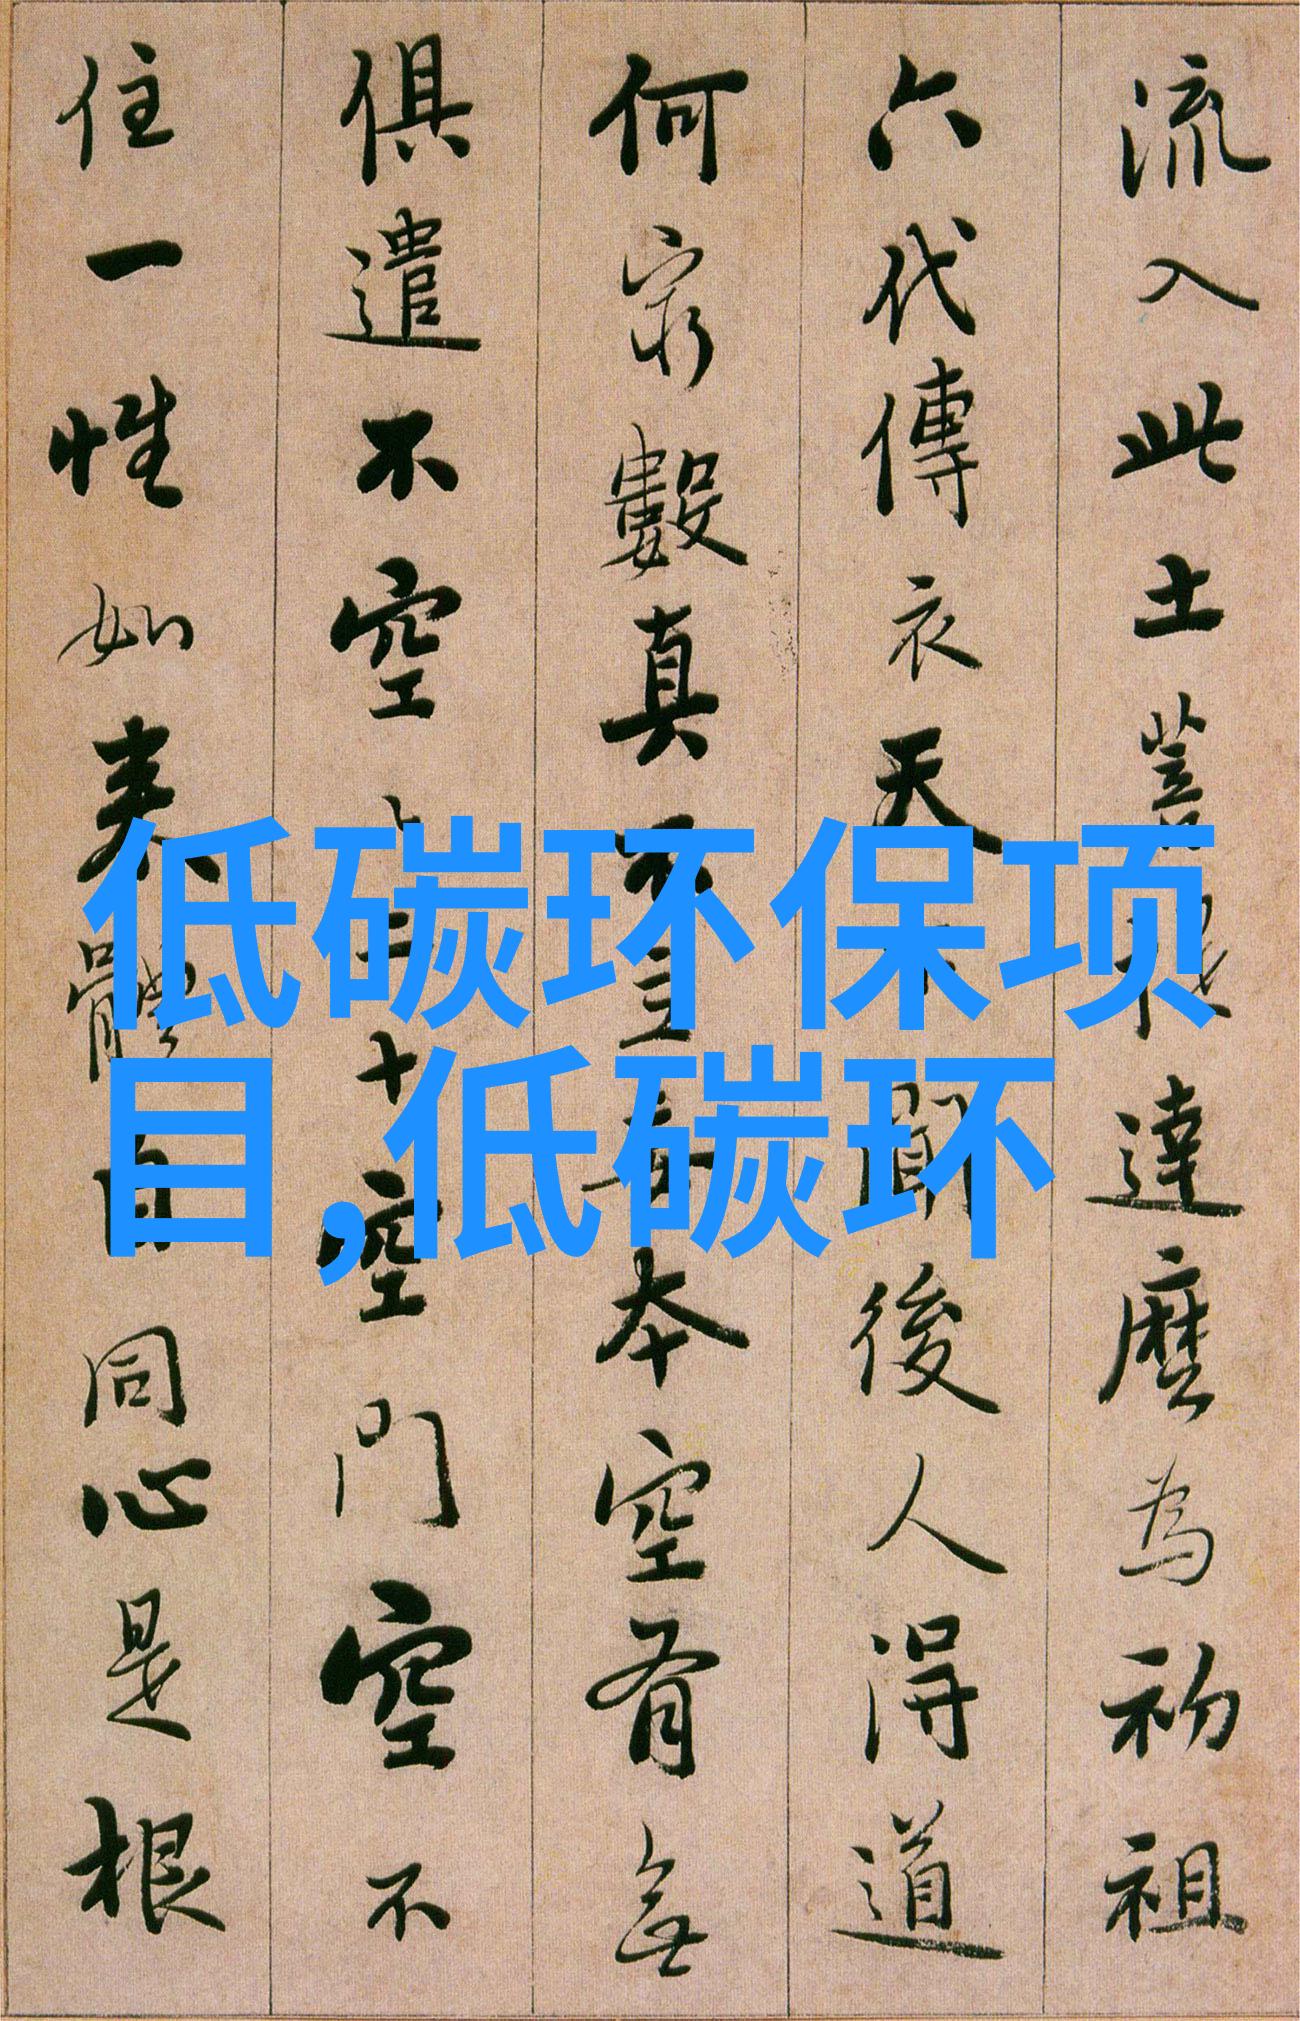 流入此土菩提達麼為初祖
六代傳衣天下聞後人得道
何窮數真不立妄本空有無
俱遣不空二十空門空不
住一性如来體自同心是根
低碳环保项
目,低碳环